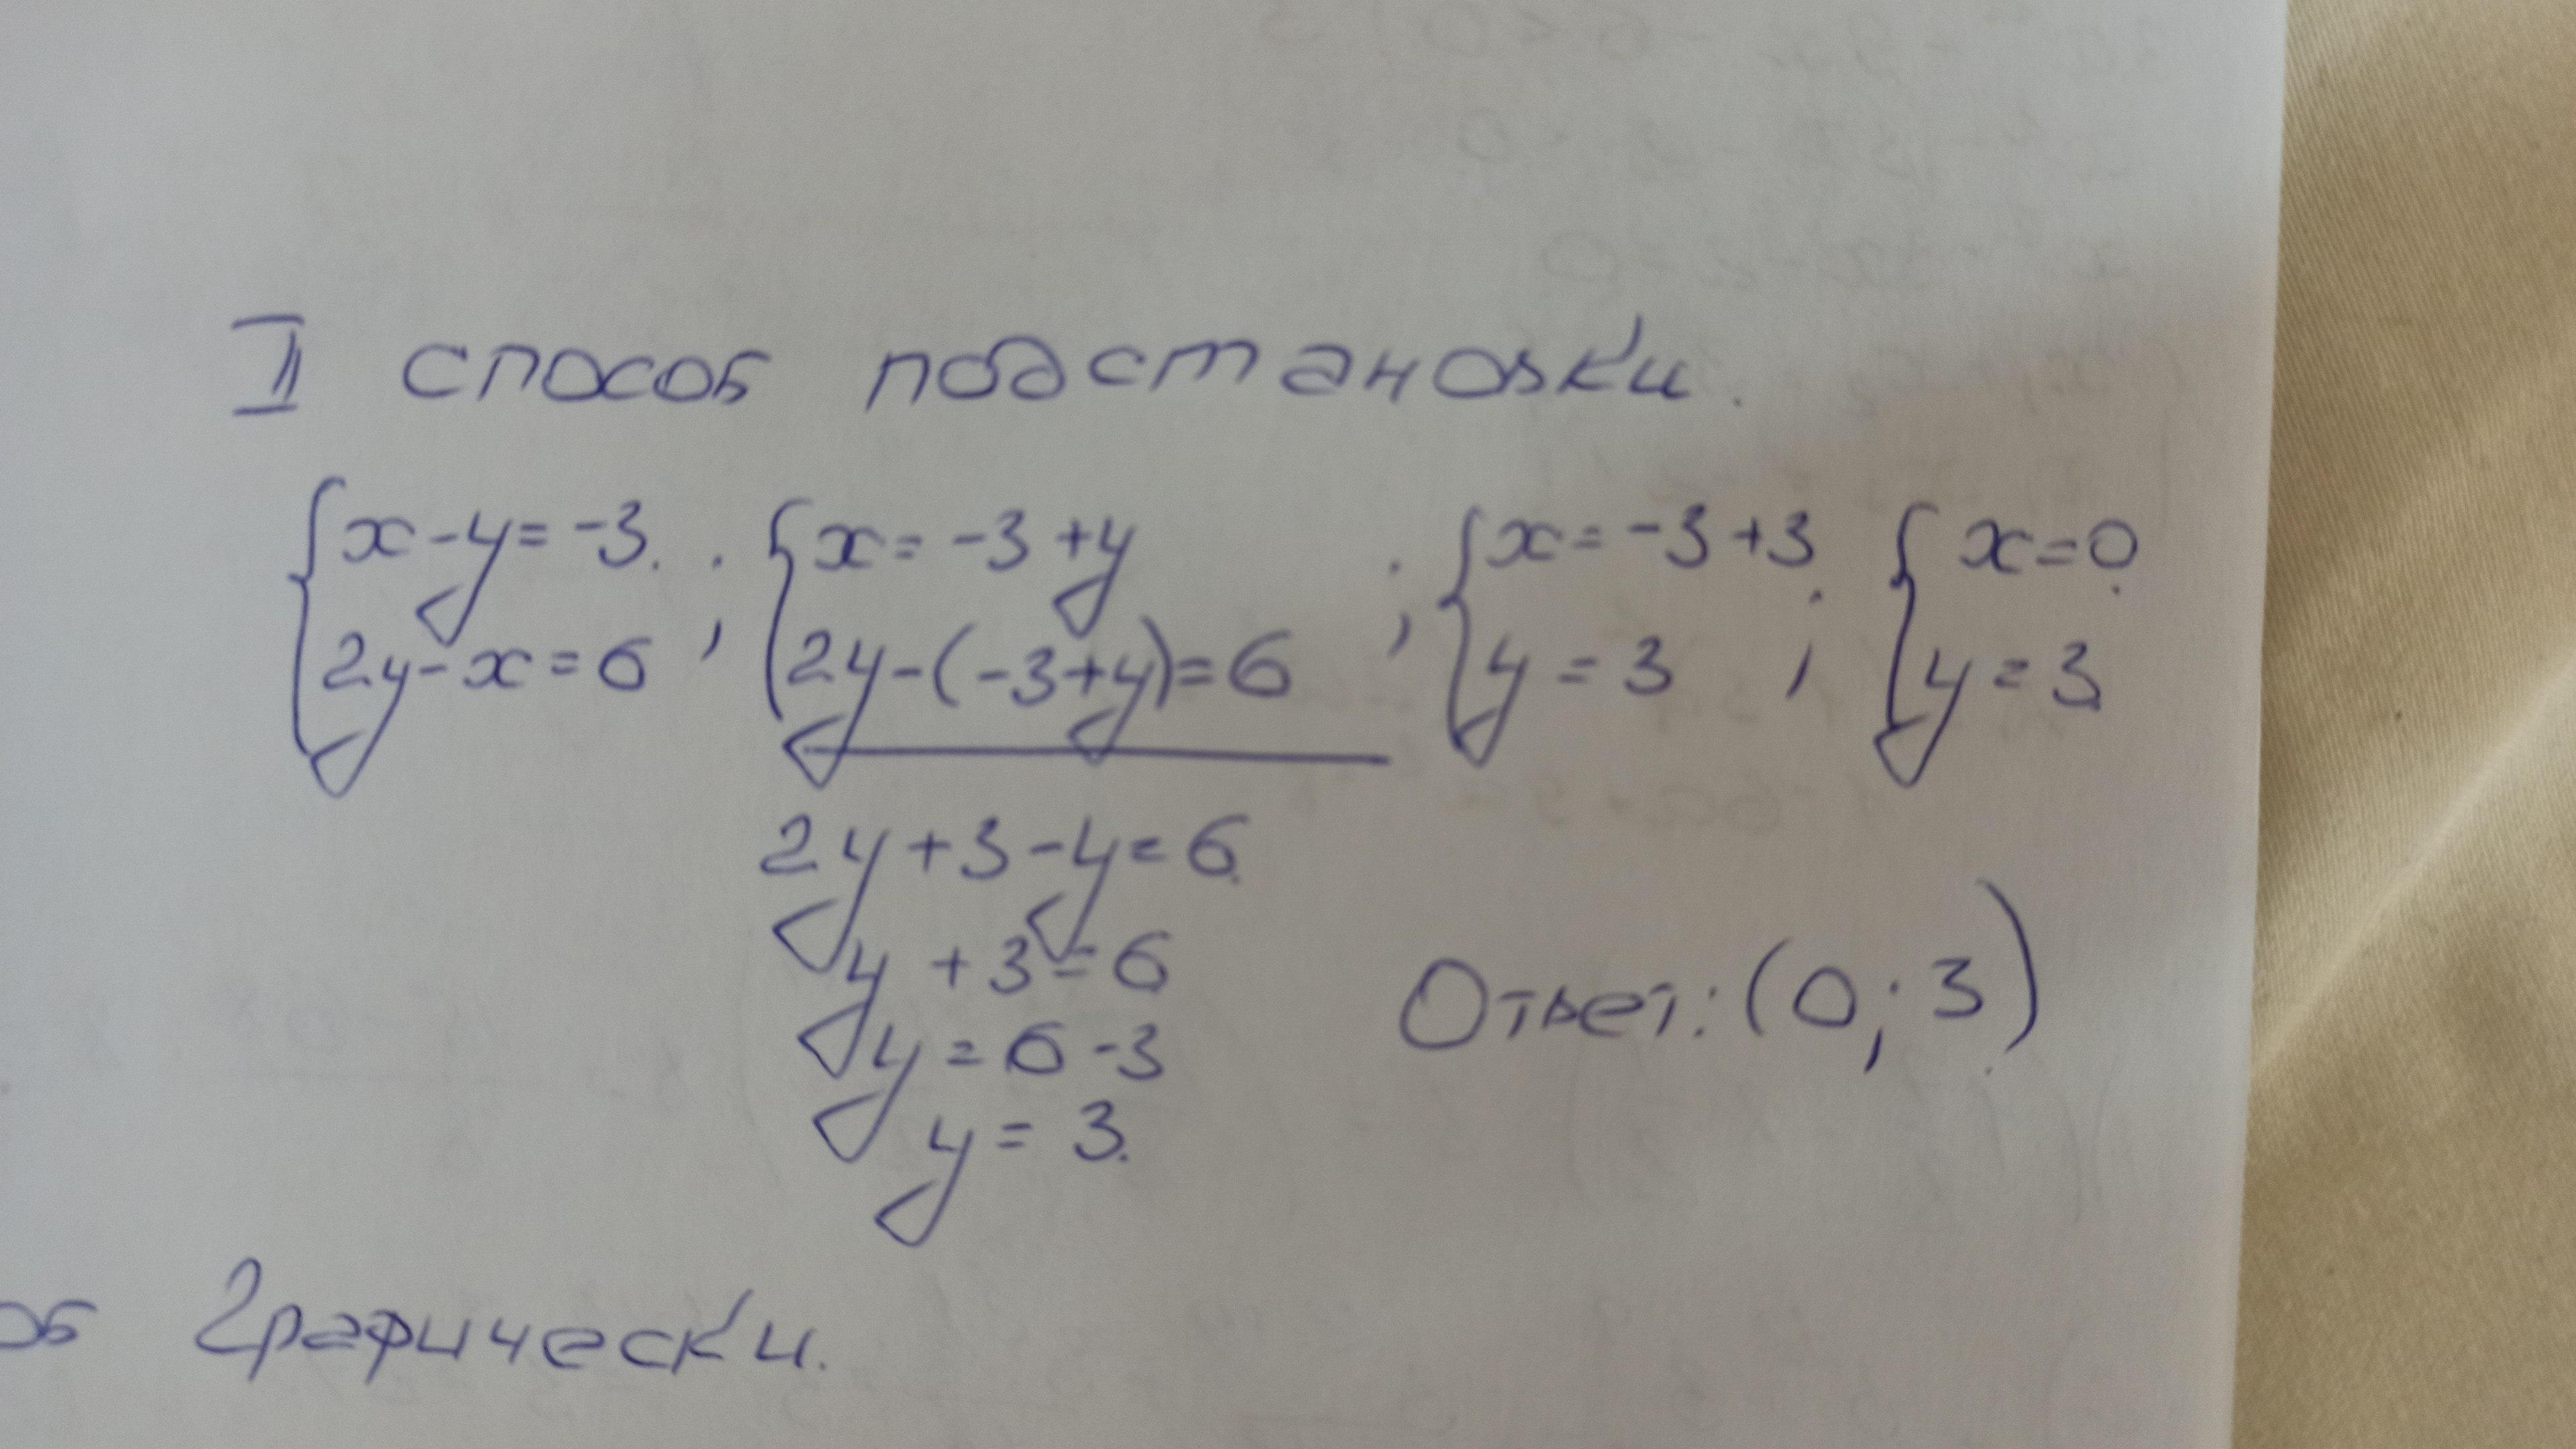 II способ подстановки.
{ x - y = -3. ; { x = -3 + y ; { x = -3 + 3 ; { x = 0
2y - x = 6 2y - (-3 + y) = 6 y = 3 y = 3
2y + 3 - y = 6
y + 3 = 6
y = 6 - 3
y = 3.
Ответ: (0; 3)
об графически.